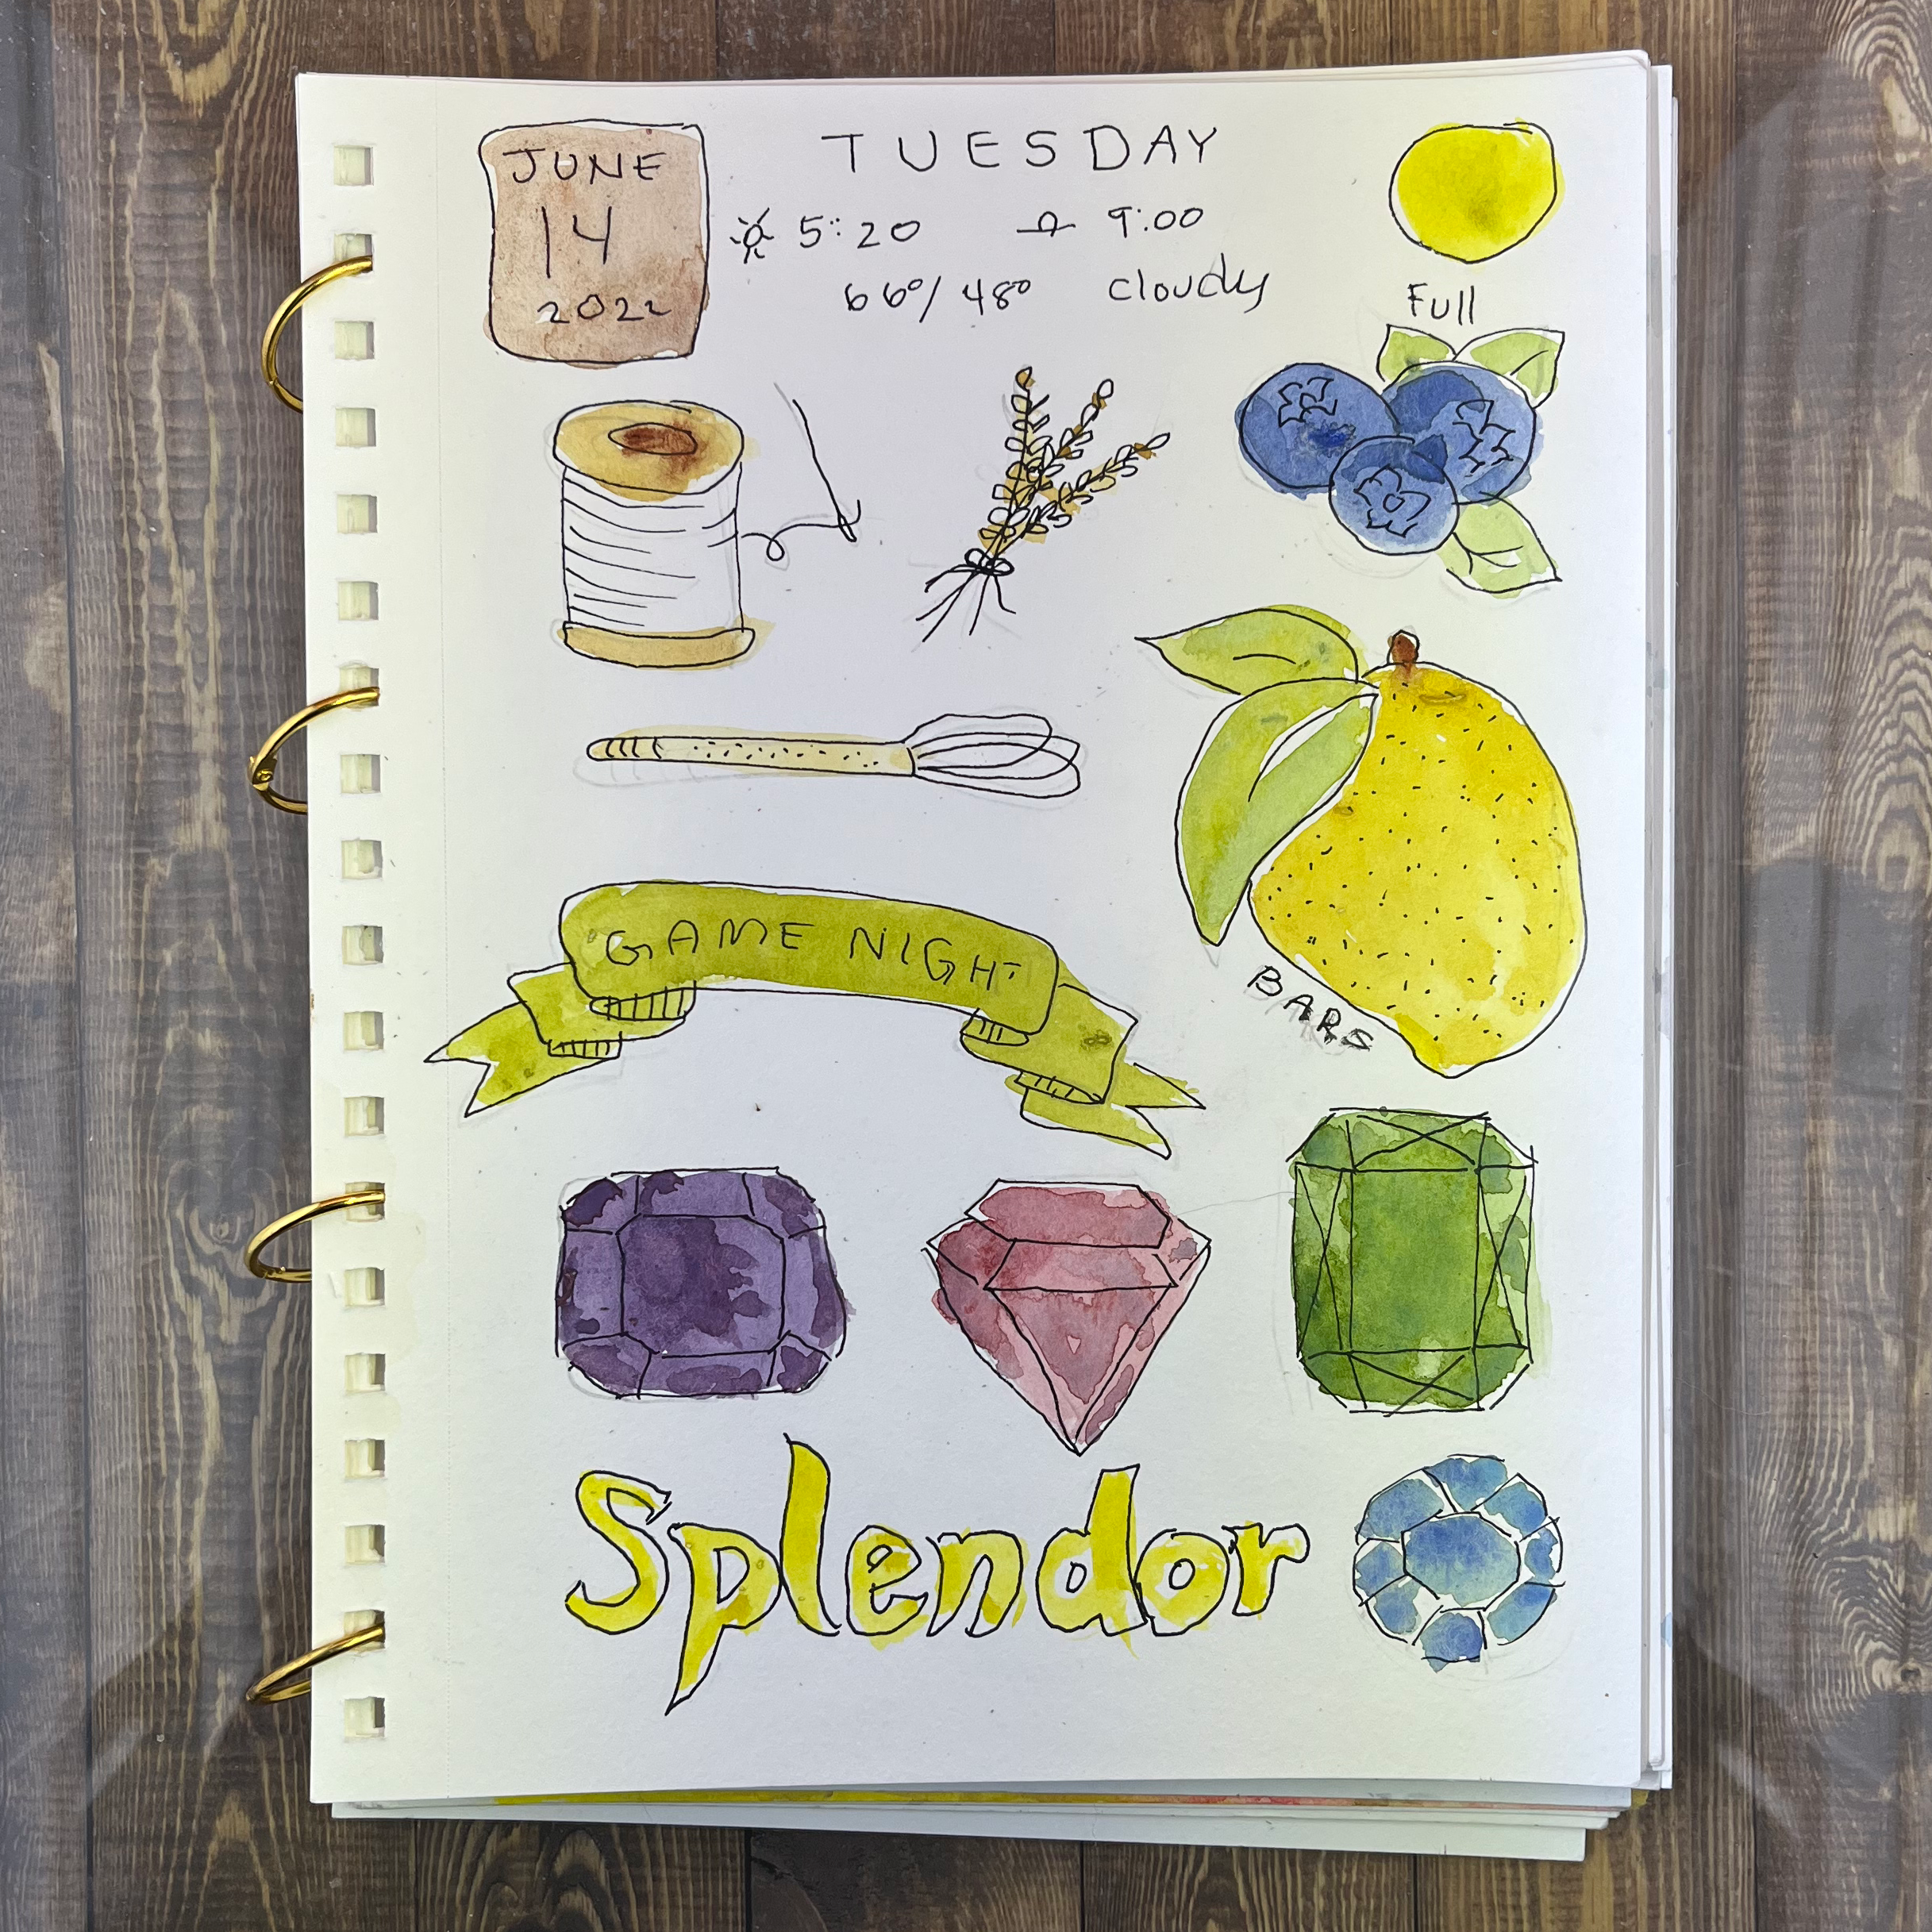 JUNE
14
2022
TUESDAY
5:20 9:00
66°/48° cloudy
Full
GAME NIGHT
BARS
Splendor